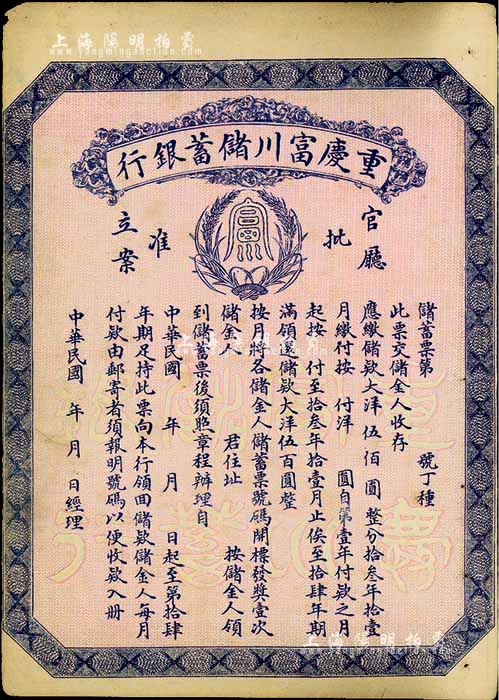 上海陽明拍賣
www.yangmingauction.com
重慶富川儲蓄銀行
官廳
批
准
立案
富
儲蓄票第 號丁種
此票交儲金人收存
應繳儲款大洋伍佰圓整分拾叁年拾壹
月繳付按 付洋 圓自第壹年付款之月
起按 付至拾叁年拾壹月止俟至拾肆年期
滿領還儲款大洋伍百圓整
按月將各儲金人儲蓄票號碼開標發獎壹次
儲金人 君住址 按儲金人領
到儲蓄票後須照章程辦理自
中華民國 年 月 日起至第拾肆
年期足持此票向本行領回儲款儲金人每月
付款由郵寄者須報明號碼以便收款入册
中華民國 年 月 日經理
上海陽明拍賣
www.yangmingauction.com